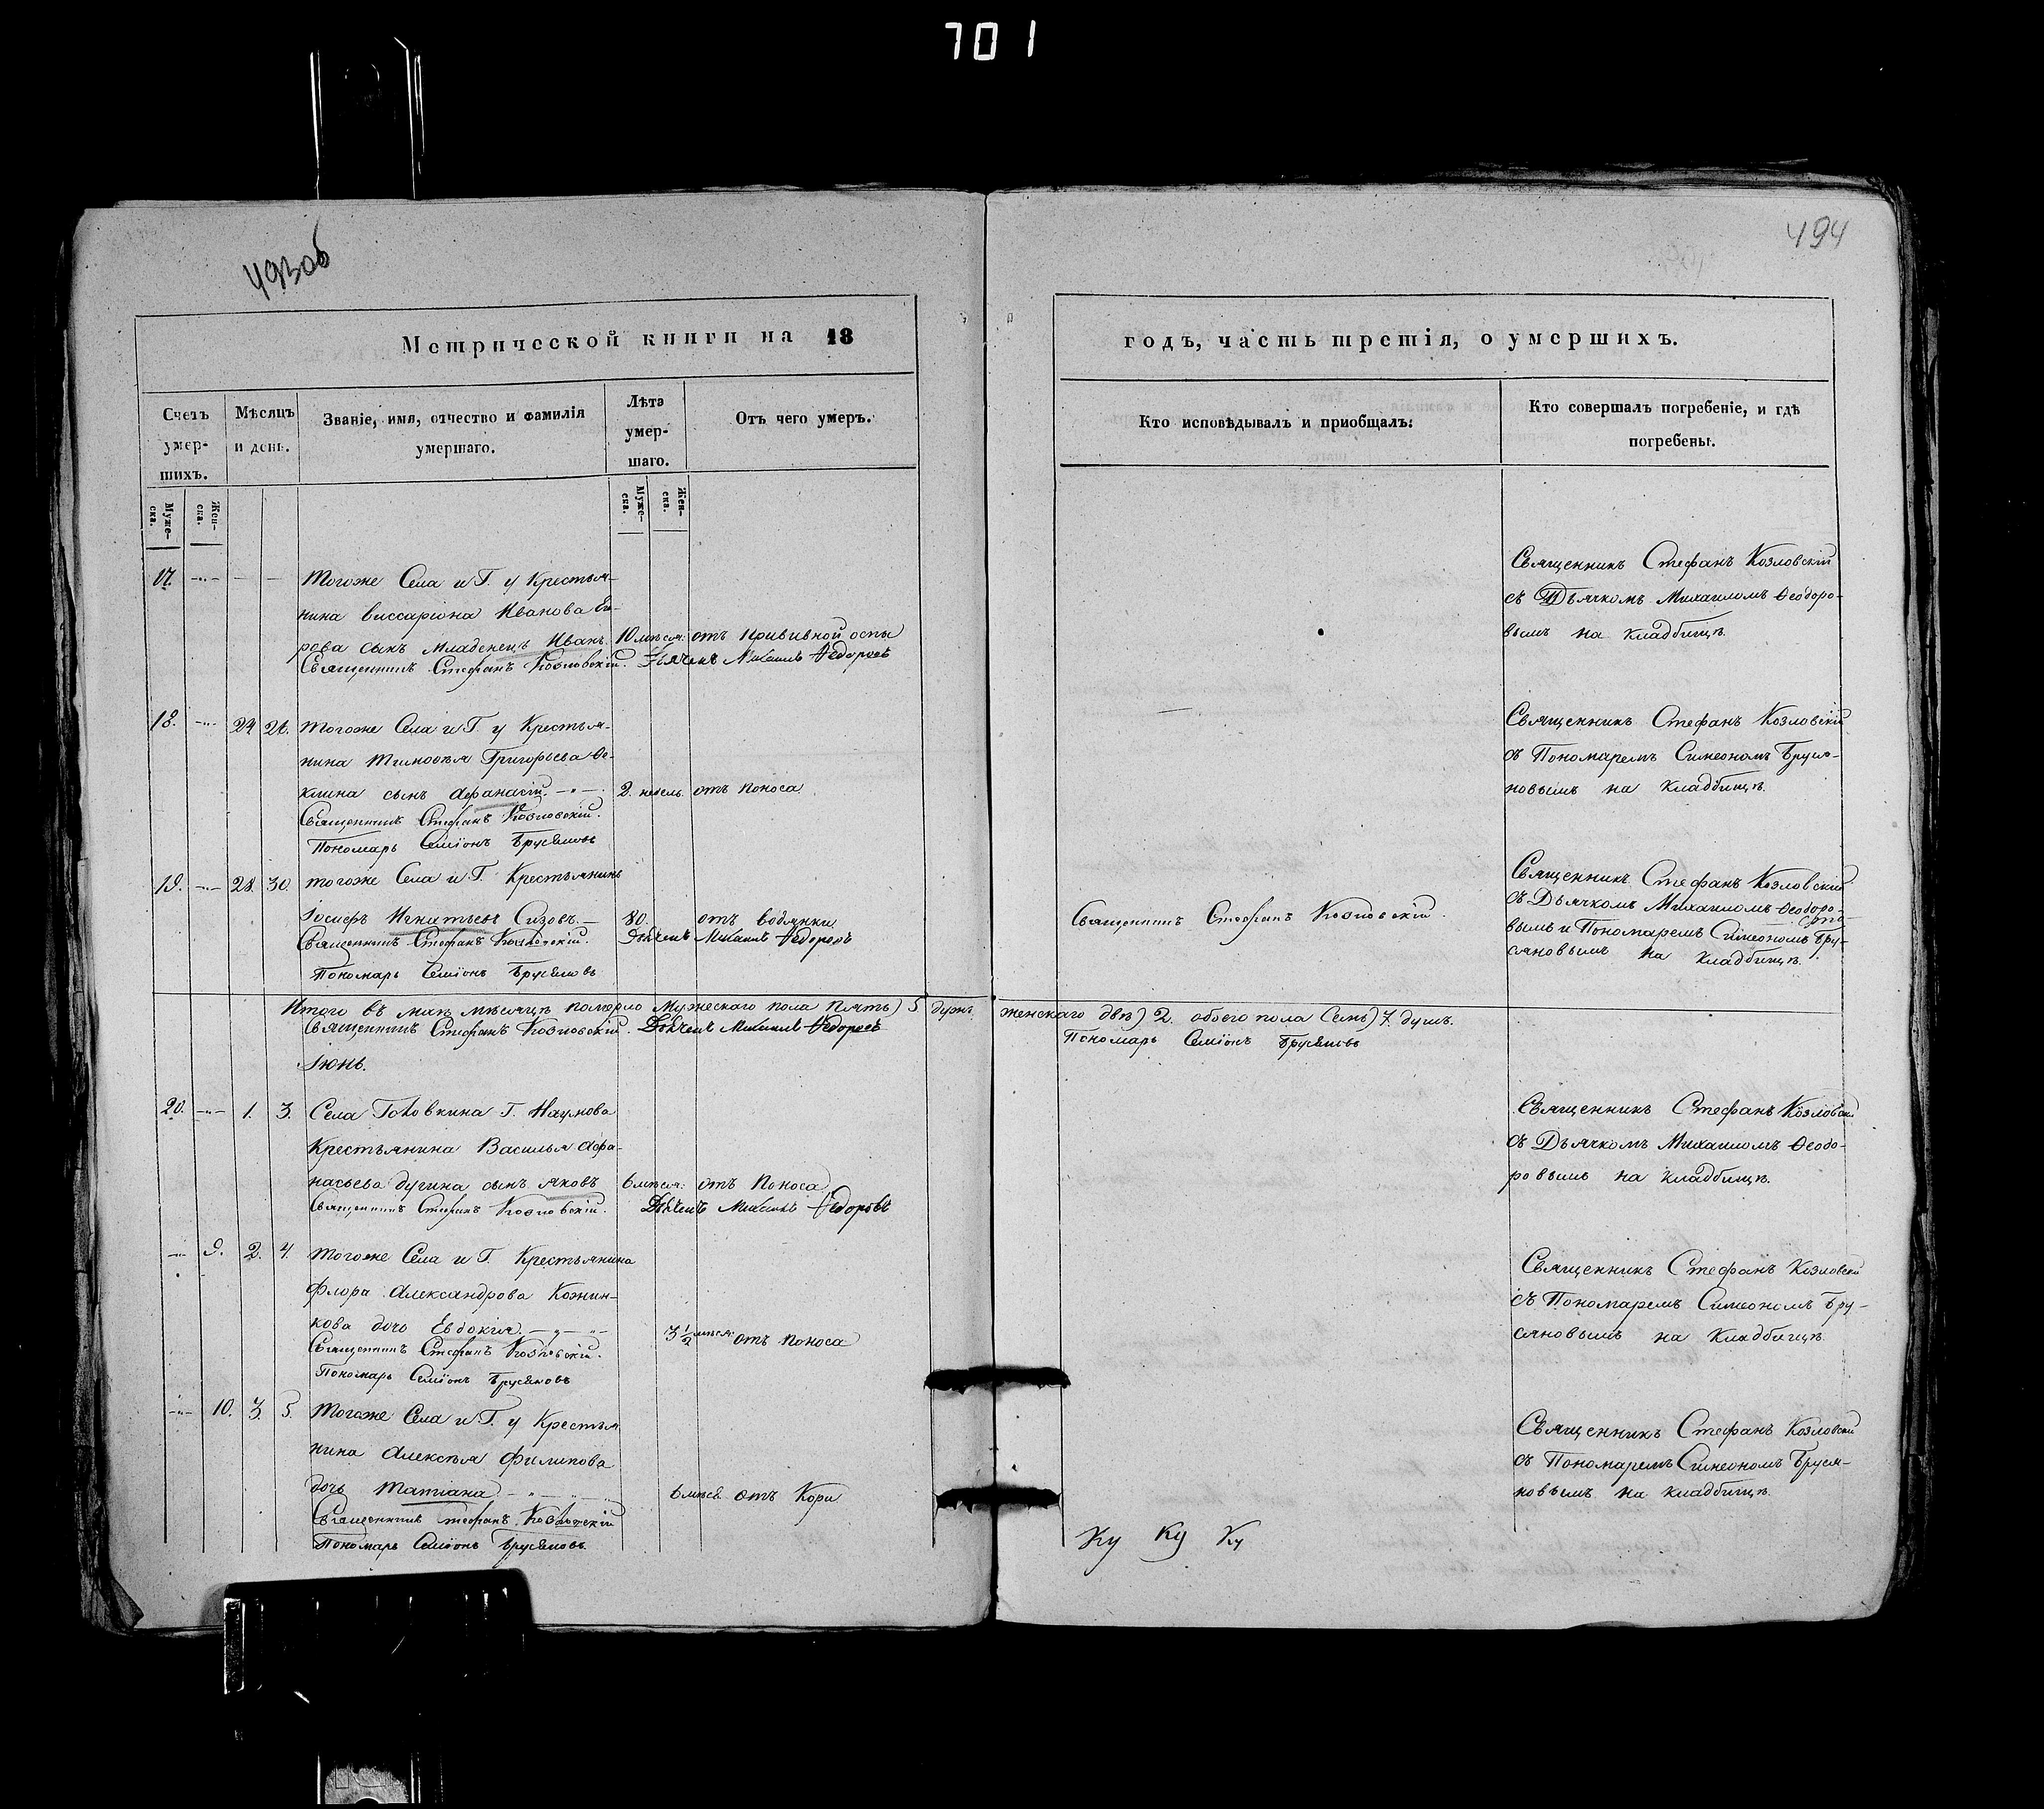 701
493об
494
Метрической книги на 18
годъ, часть третія, о умершихъ.
Счетъ умер-шихъ.
Мѣсяцъ и день.
Званіе, имя, отчество и фамилія умершаго.
Лѣта умер-шаго.
Отъ чего умеръ.
Кто исповѣдывалъ и пріобщалъ:
Кто совершалъ погребеніе, и гдѣ погребены.
Муже-ска.
Жен-ска.
Муже-ска.
Жен-ска.
17. Тогоже Села и Г. у Крестья-
нина Виссаріона Иванова Его-
рова сынъ младенецъ Иванъ. 10 мѣсяц: отъ прививной оспы
Священникъ Стефанъ Козловскій. Дьячекъ Михаилъ Ѳедоровъ
Священникъ Стефанъ Козловскій
съ Дьячкомъ Михаиломъ Ѳеодоро-
вымъ на кладбищѣ.
18. 24 26. Тогоже Села и Г. у Крестья-
нина Тимоѳея Григорьева Ѳе-
клина сынъ Афанасій. 2. недель. отъ поноса.
Священникъ Стефанъ Козловскій.
Пономарь Семіонъ Брусяновъ
Священникъ Стефанъ Козловскій
съ Пономаремъ Симеономъ Бруся-
новымъ на кладбищѣ.
19. 28 30. тогоже Села и Г. Крестьянинъ
Іосифъ Игнатьевъ Сизовъ. 80. отъ водянки
Священникъ Стефанъ Козловскій. Дьячекъ Михаилъ Ѳедоровъ
Пономарь Семіонъ Брусяновъ
Священникъ Стефанъ Козловскій.
Священникъ Стефанъ Козловскій
съ Дьячкомъ Михаиломъ Ѳеодоро-
вымъ и Пономаремъ Симеономъ Бру-
сяновымъ на кладбищѣ.
Итого въ маѣ мѣсяцѣ померло Мужескаго пола пять) 5 душъ. женскаго двѣ) 2. обоего пола Семь) 7. душъ.
Священникъ Стефанъ Козловскій. Дьячекъ Михаилъ Ѳедоровъ Пономарь Семіонъ Брусяновъ
Іюнь.
20. 1. 3. Села Головкина Г. Наумова
Крестьянина Василья Афа-
насьева Дугина сынъ Яковъ 6 мѣсяц: отъ поноса
Священникъ Стефанъ Козловскій. Дьячекъ Михаилъ Ѳедоровъ
Священникъ Стефанъ Козловскій
съ Дьячкомъ Михаиломъ Ѳеодо-
ровымъ на кладбищѣ.
9. 2. 4. Тогоже Села и Г. Крестьянина
Флора Александрова Кожин-
кова дочь Евдокія. 3 1/2 мѣсяц: отъ поноса
Священникъ Стефанъ Козловскій.
Пономарь Семіонъ Брусяновъ
Священникъ Стефанъ Козловскій
съ Пономаремъ Симеономъ Бру-
сяновымъ на кладбищѣ.
10. 3. 5. Тогоже Села и Г. у Крестья
нина Алексѣя Филипова
дочь Татіана 6 мѣсяц. отъ Кори
Священникъ Стефанъ Козловскій
Пономарь Семіонъ Брусяновъ.
Священникъ Стефанъ Козловскій
съ Пономаремъ Симеономъ Бруся-
новымъ на кладбищѣ.
Ку Ку Ку